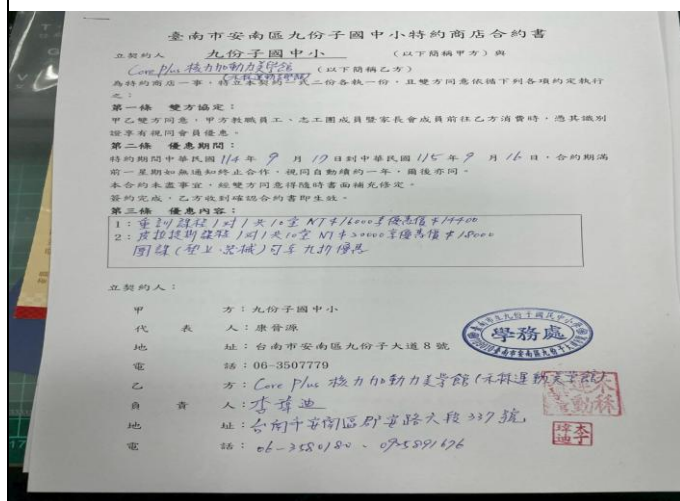 臺南市安南區九份子國中小特約商店合約書
立契約人 九份子國中小 (以下簡稱甲方)與
Core plus 核力加動力美學館 (以下簡稱乙方)
(禾林運動美學館)
為特約商店一事,特立本契約一式二份各執一份,且雙方同意依循下列各項約定執行
之:
第一條 雙方協定:
甲乙雙方同意,甲方教職員工、志工團成員暨家長會成員前往乙方消費時,憑其識別
證享有視同會員優惠。
第二條 優惠期間:
特約期間中華民國 114 年 9 月 17 日到中華民國 115 年 9 月 16 日,合約期滿
前一星期如無通知終止合作,視同自動續約一年,爾後亦同。
本合約未盡事宜,經雙方同意得隨時書面補充修定。
簽約完成,乙方收到確認合約書即生效。
第三條 優惠內容:
1:重訓課程1对1共10堂 NT$16000享優惠價$14400
2:皮拉提斯課程1对1共10堂 NT$20000享優惠價$18000
團課(墊上.器械)可享九折優惠
立契約人:
甲 方:九份子國中小
代 表 人:康晉源
地 址:台南市安南區九份子大道8號
學務處
電 話:06-3507779
乙 方:Core plus 核力加動力美學館(禾林運動美學館)
負 責 人:李瑋迪
地 址:台南市安南區郡安路六段337號
電 話:06-3580180、